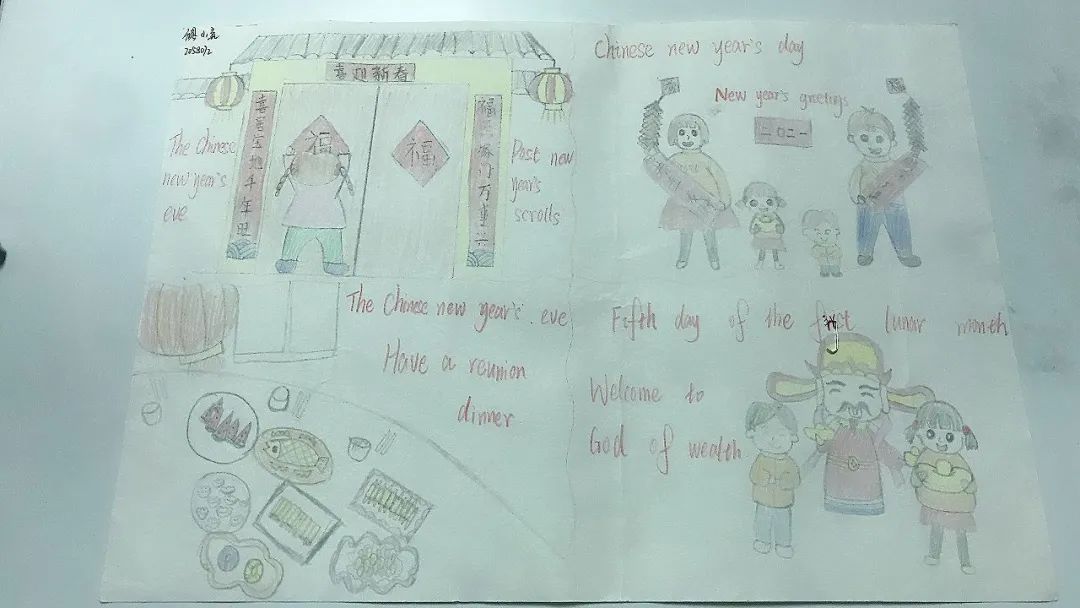 喜迎新春
喜居宝地千年旺
福
福
福 门万事兴
The Chinese
new year's
eve
Post new
year's
scrolls
Chinese new year's day
New year's greetings
二〇二一
The Chinese new year's. eve
Have a reunion
dinner
Fifth day of the first lunar month
Welcome to
God of wealth